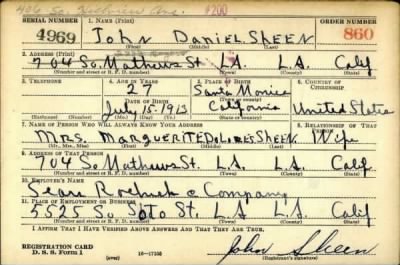 406 So. Ave. #200
SERIAL NUMBER 1. NAME (Print) ORDER NUMBER
4969 John Daniel Sheen 860
(First) (Middle) (Last)
2. ADDRESS (Print)
704 So. Mathews St. L.A. L.A. Calif
(Number and street or R. F. D. number) (Town) (County) (State)
3. TELEPHONE 4. AGE IN YEARS 5. PLACE OF BIRTH 6. COUNTRY OF CITIZENSHIP
27 Santa Monica
DATE OF BIRTH (Town or county)
July 15-1913 California United States
(Exchange) (No.) (Mo.) (Day) (Yr.) (State or country)
7. NAME OF PERSON WHO WILL ALWAYS KNOW YOUR ADDRESS 8. RELATIONSHIP OF THAT PERSON
Mrs. Marguerite Dolores Sheen Wife
(Mr., Mrs., Miss) (First) (Middle) (Last)
9. ADDRESS OF THAT PERSON
704 So Mathews St. L.A. L.A. Calif.
(Number and street or R. F. D. number) (Town) (County) (State)
10. EMPLOYER'S NAME
Sears Roebuck & Company
11. PLACE OF EMPLOYMENT OR BUSINESS
5525 So Soto St. L.A. L.A. Calif
(Number and street or R. F. D. number) (Town) (County) (State)
I AFFIRM THAT I HAVE VERIFIED ABOVE ANSWERS AND THAT THEY ARE TRUE.
REGISTRATION CARD
D. S. S. Form 1 (over) 16—17105 John Sheen
(Registrant's signature)